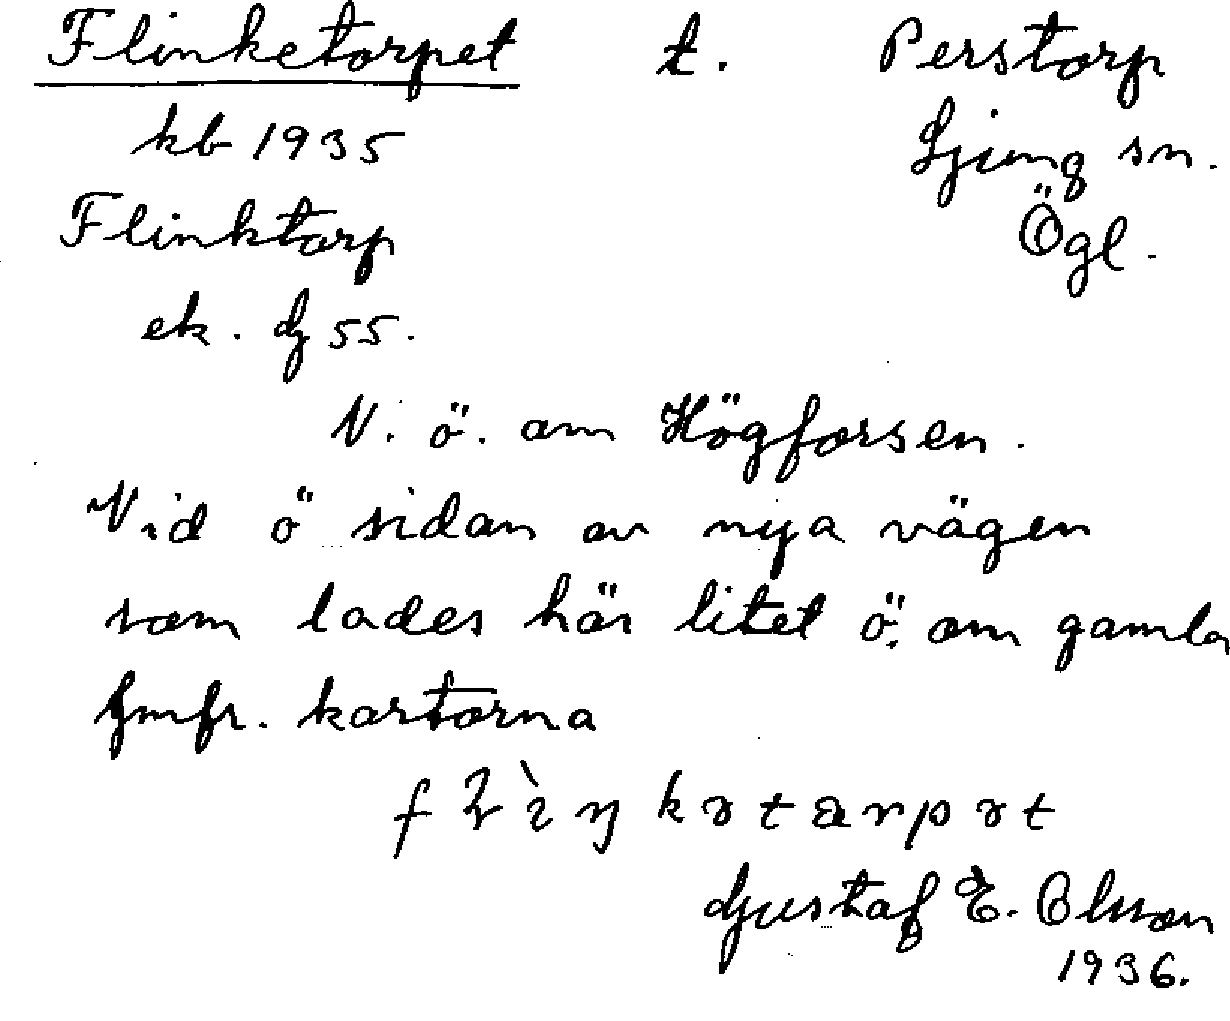 Flinketorpet t. Perstorp
kb 1935 Ljung sn.
Flinktorp Ögl.
ek. bl 55.
N. ö. om Högforsen.
Vid ö sidan av nya vägen
som lades här litet ö. om gamla
Jmfr. kartorna
Gustaf E. Olsson
1936.